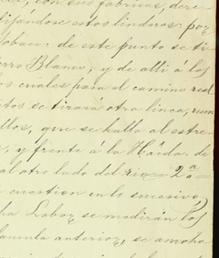 con sus fabricas, dere-
fijandose estos linderos: por
de este punto se ti-
rro Blanco, y de alli á los
os cuales pasa el camino real
tos se tirará otra linea, rum
llos, que se halla al estre-
, y frente á la Hda. de
al otro lado del 2a
cuestion en lo sucesivo,
ha Labor se medirán los
anterior, se amoho